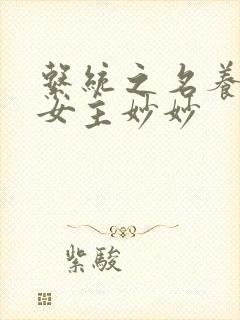 繫統之名養
女主妙妙
紫駿